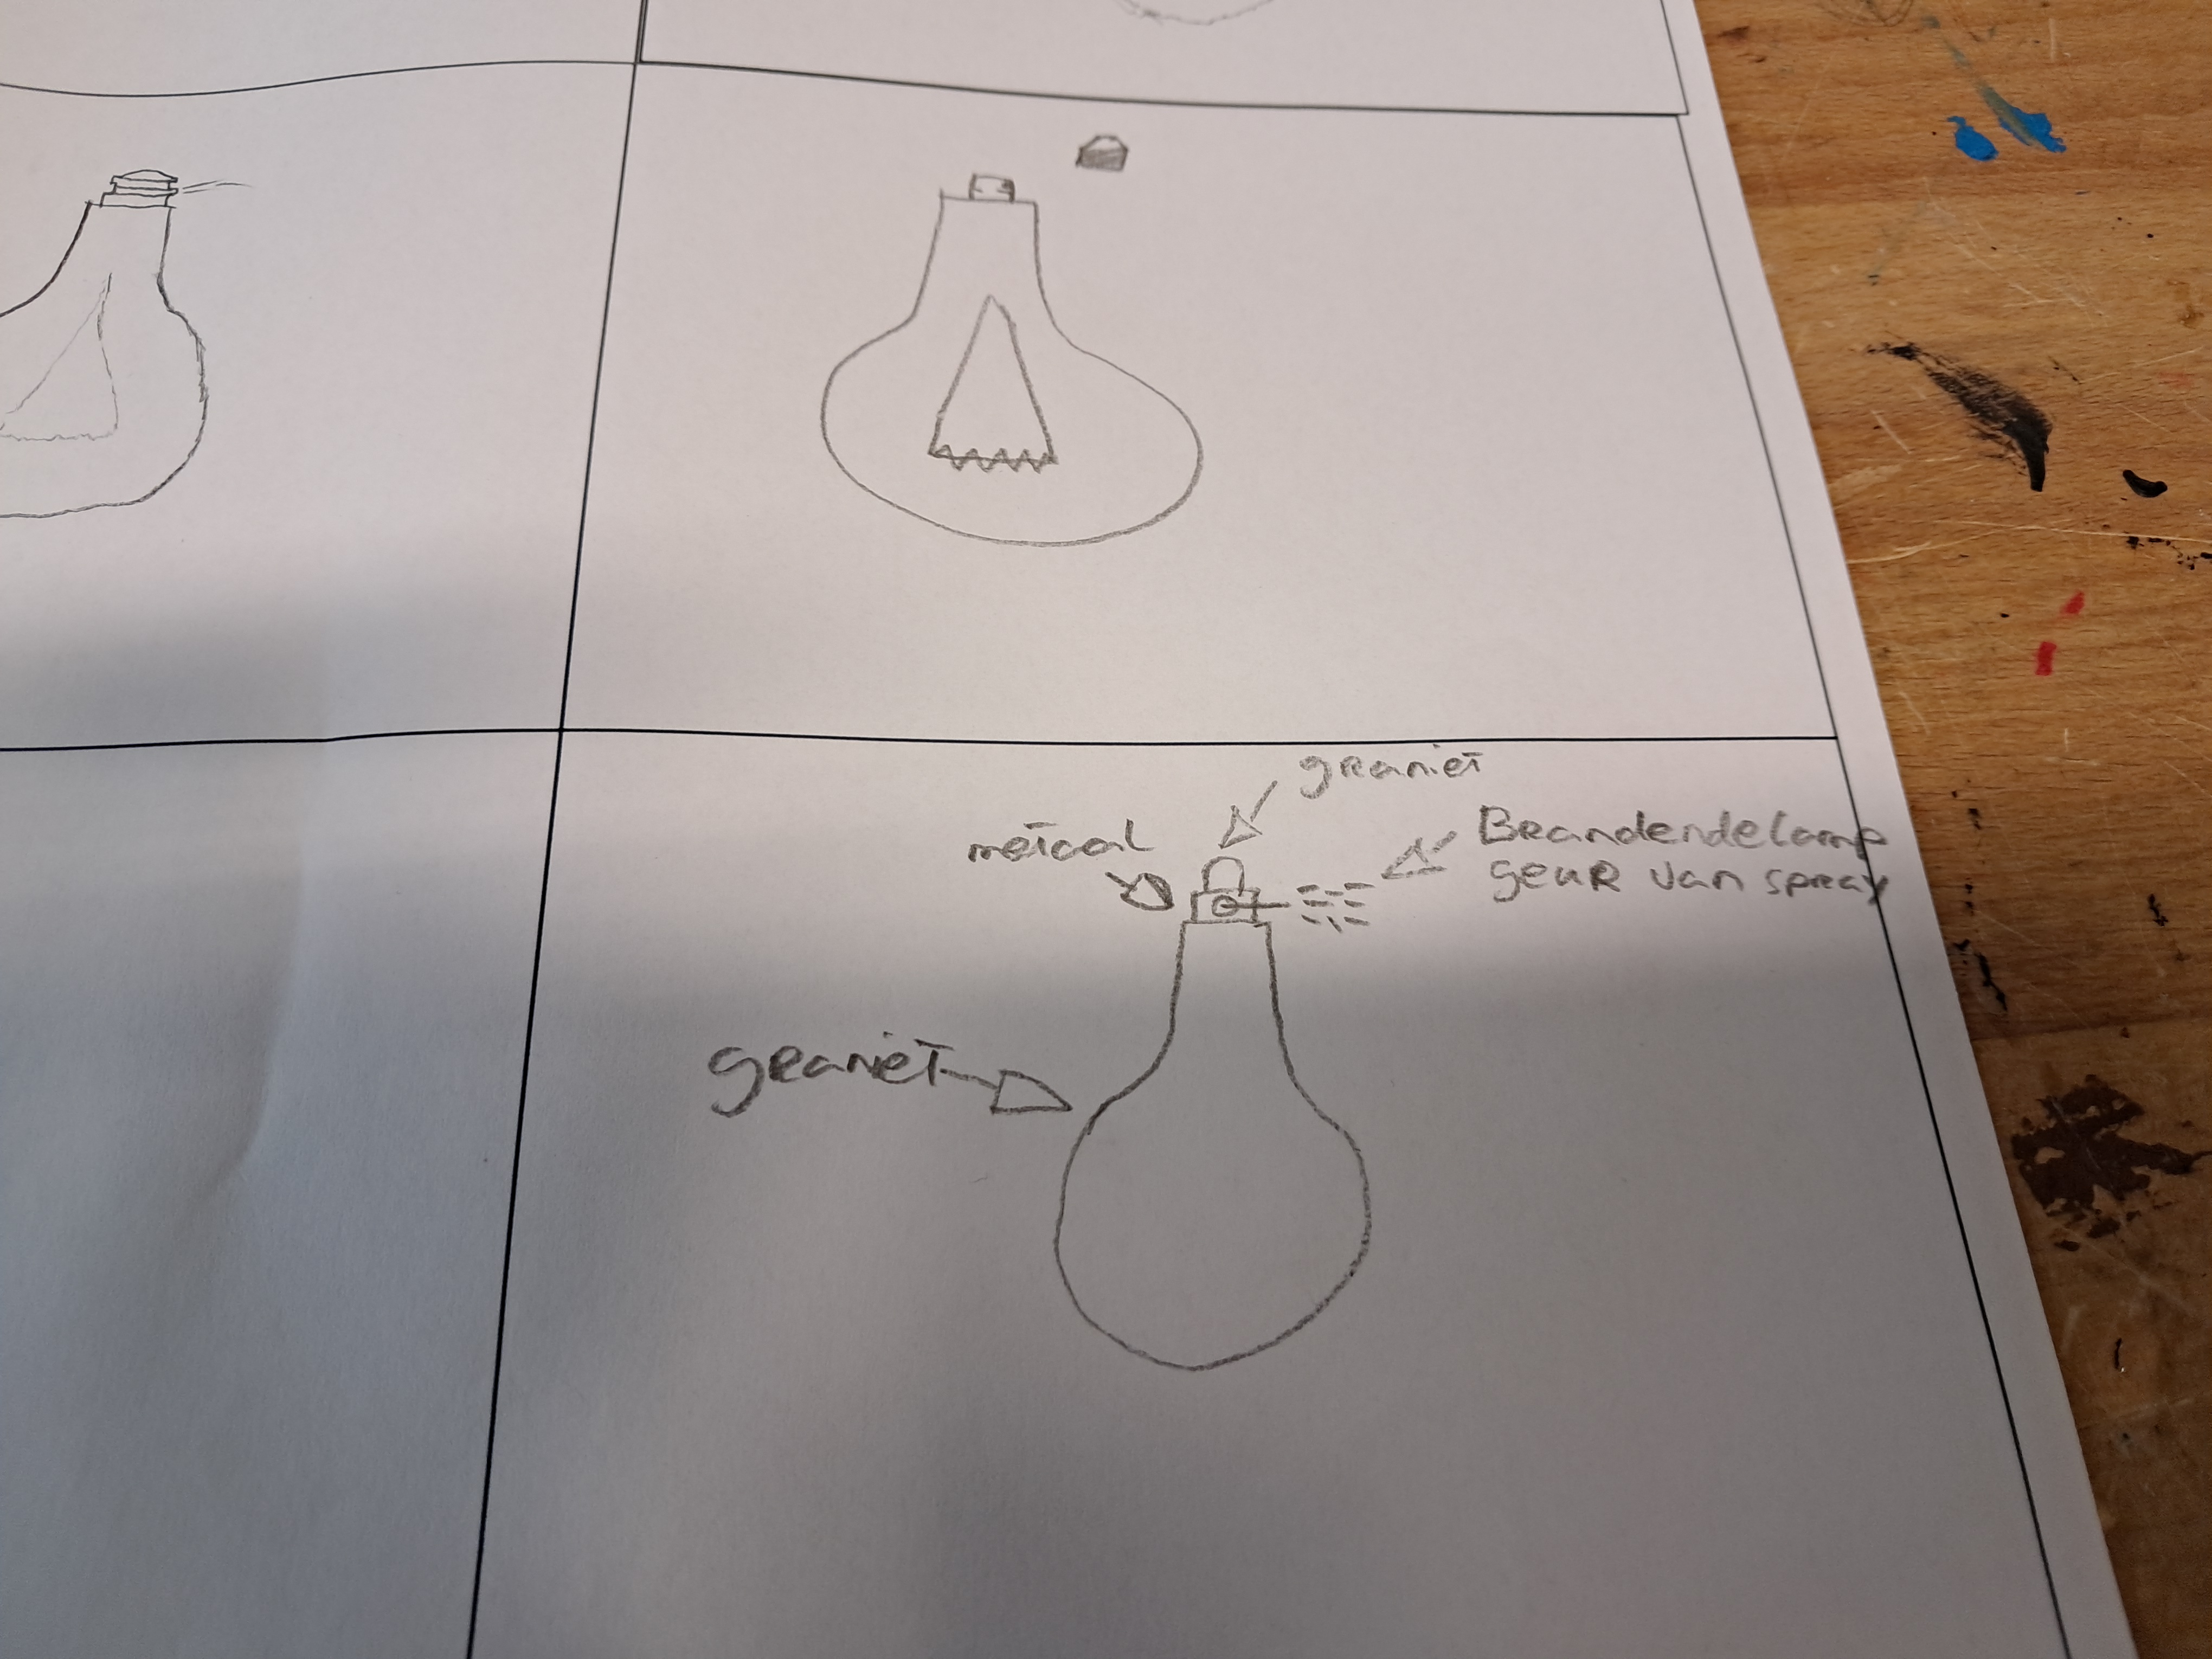 graniet
metaal
Brandendelamp
geur van spray
graniet